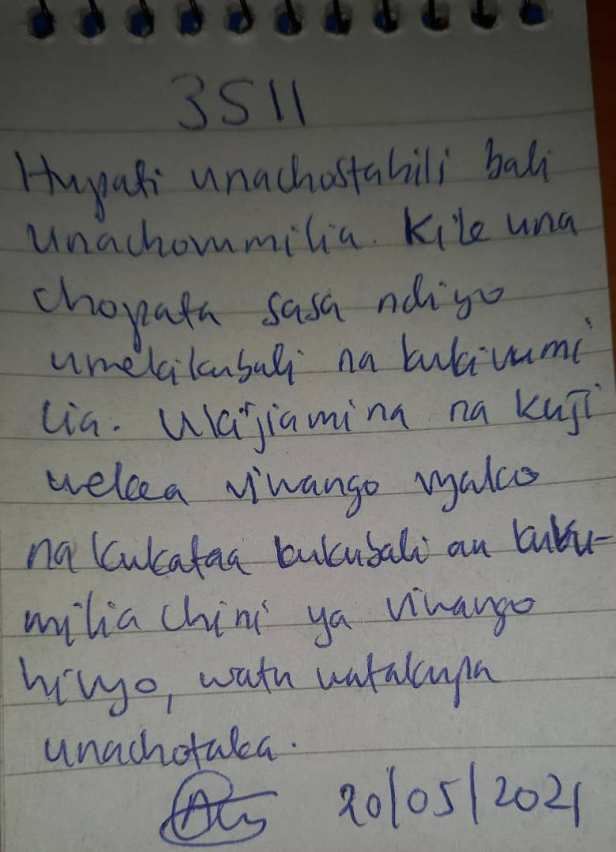 3511
Hupati unachostahili bali
unachovumilia. Kile una
chopata sasa ndiyo
umekikubali na kukivumi
lia. Ukijiamina na kuji
wekea viwango vyako
na kukataa kukubali au kuvu-
milia chini ya viwango
hivyo, watu watakupa
unachotaka.
20/05/2021